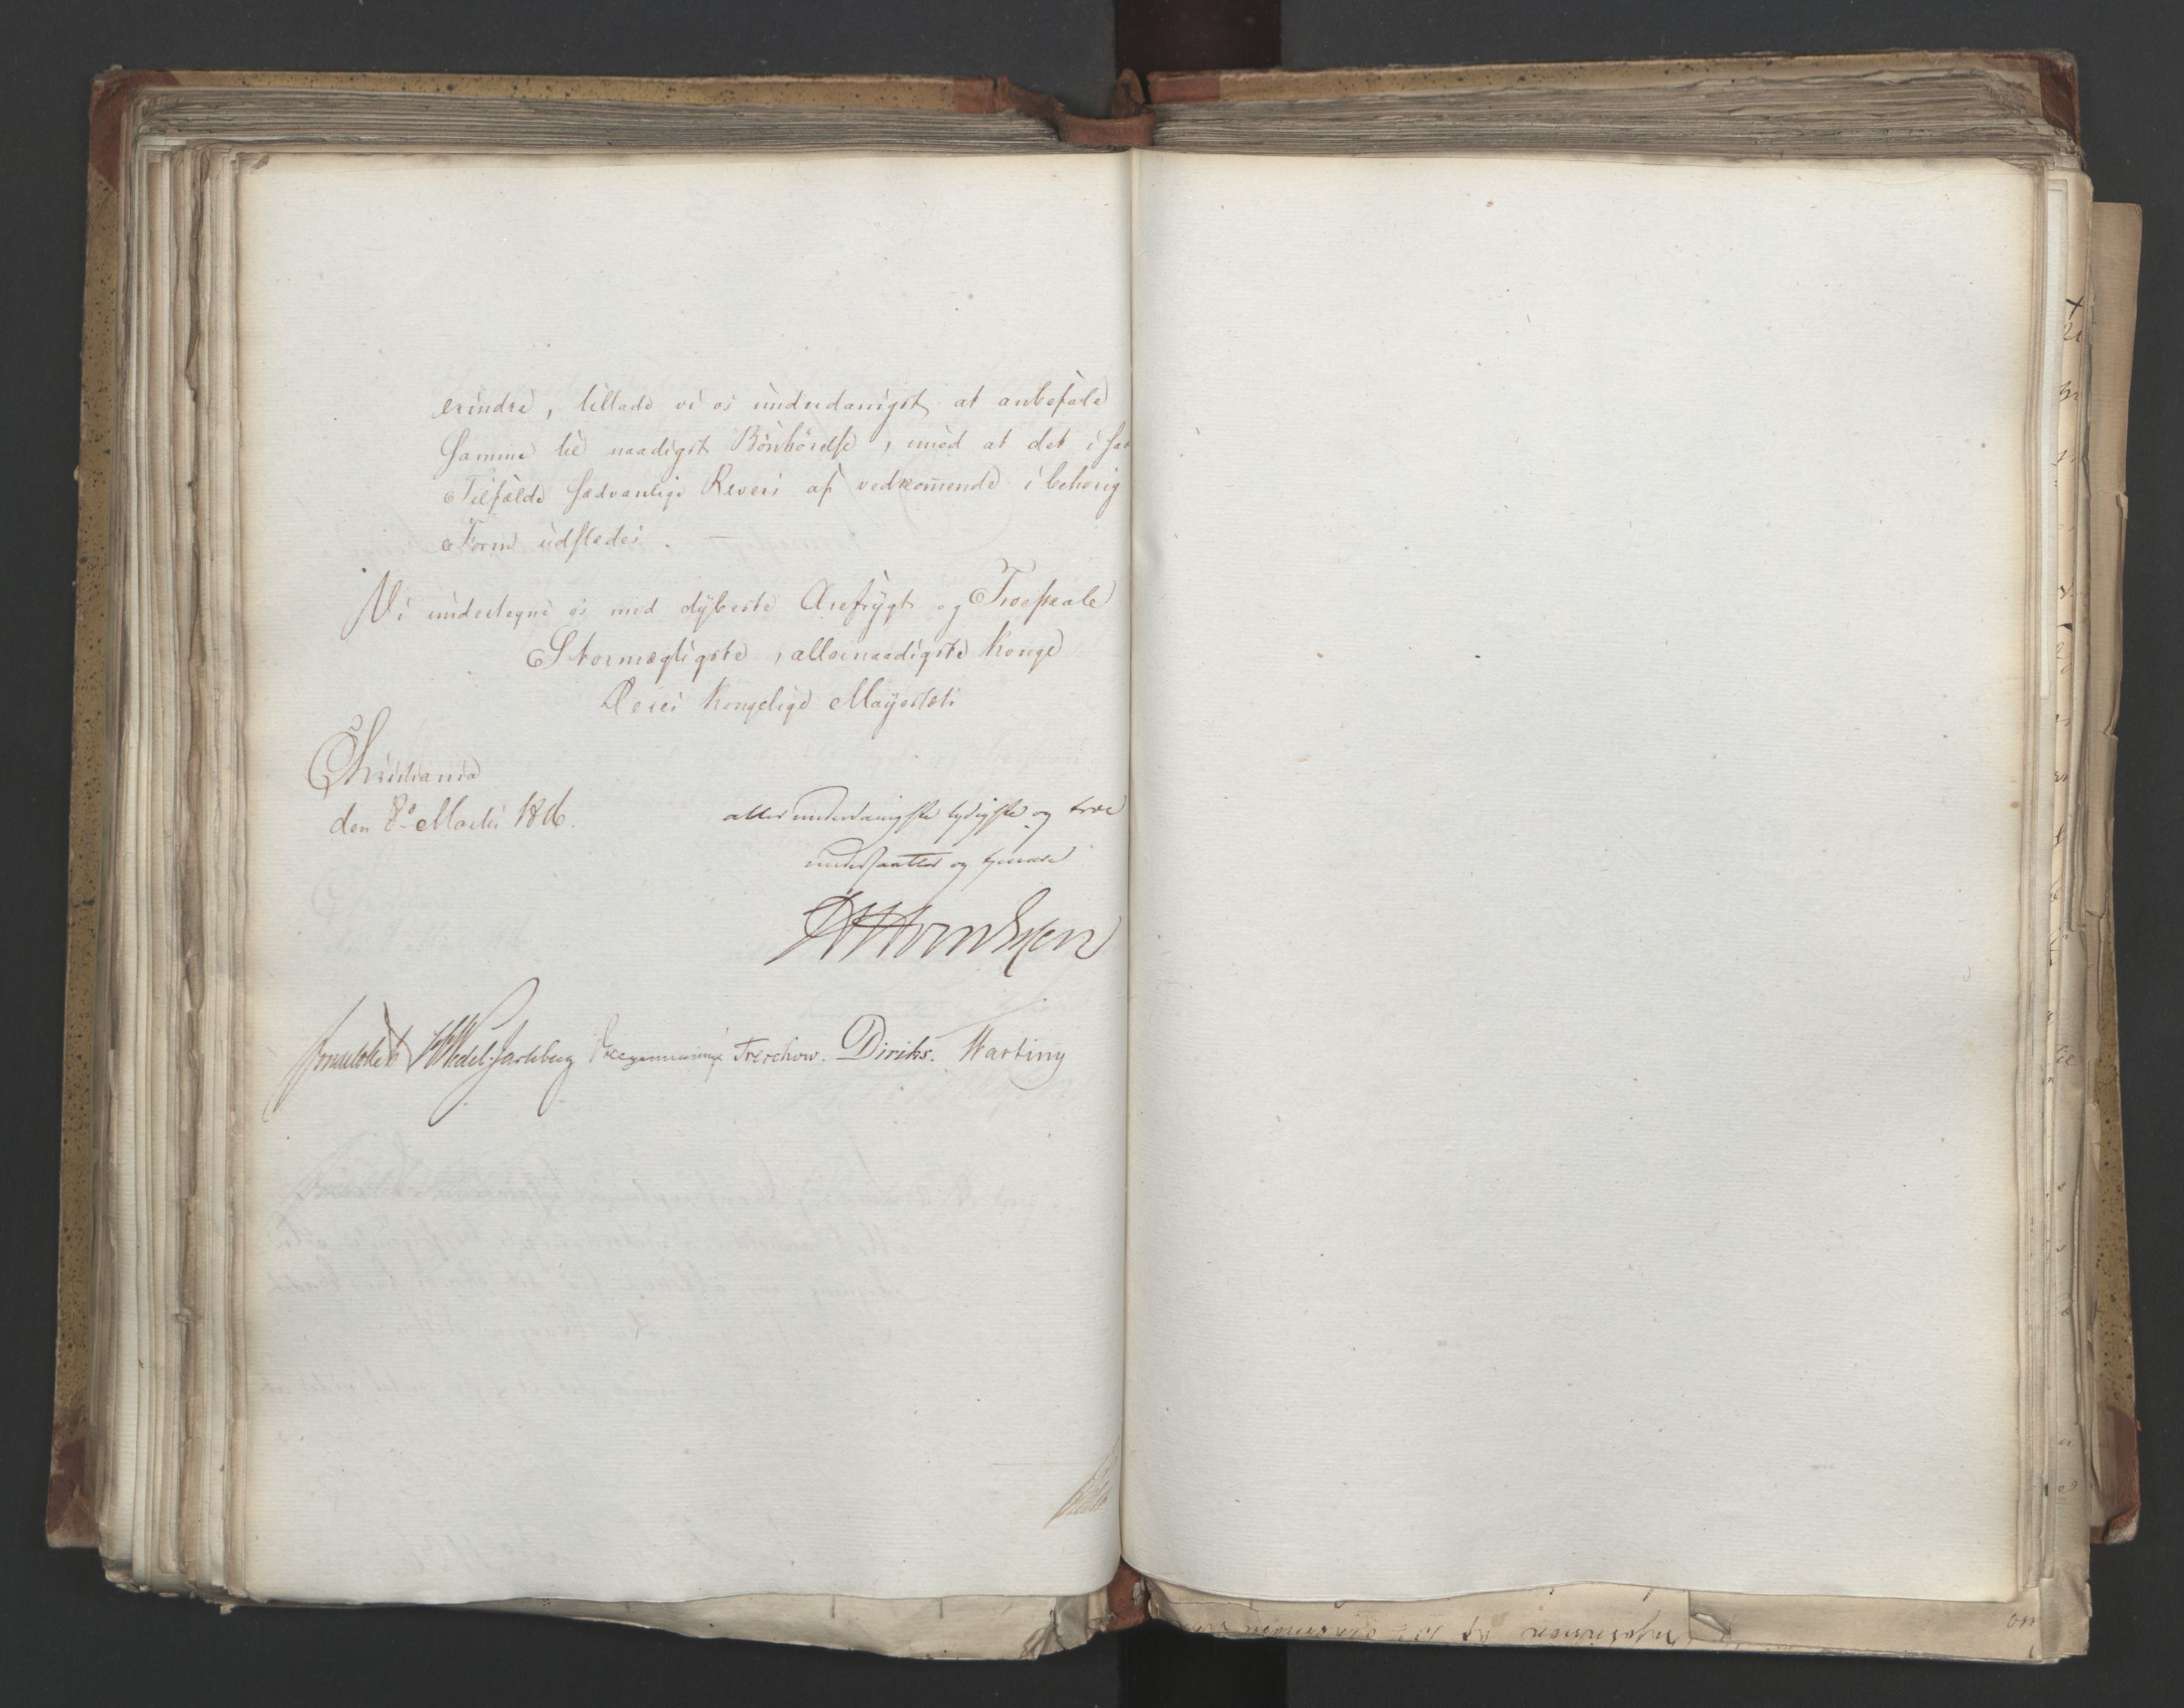 erindre, tillade vi os underdanigst at anbefale
samme til naadigst Bönhörelse, imod at det i saa
Tilfælde sædvanlige Revers af vedkom̄ende i behörig
Form udstedes. —
Vi undertegne os med dybeste Ærefrygt og Troeskab
Stormægtigste, allernaadigste Konge
Deres Kongelige Mayestæts
Christiania
den 8de Marts 1816.
allerunderdanigste lydigste og troe
undersaatter og tjenere
Sommerhielm HWedel-Jarlsberg Treschow. Diriks. Hartung